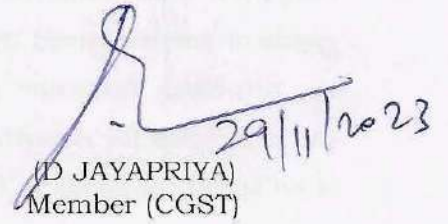 29/11/2023
(D JAYAPRIYA)
Member (CGST)